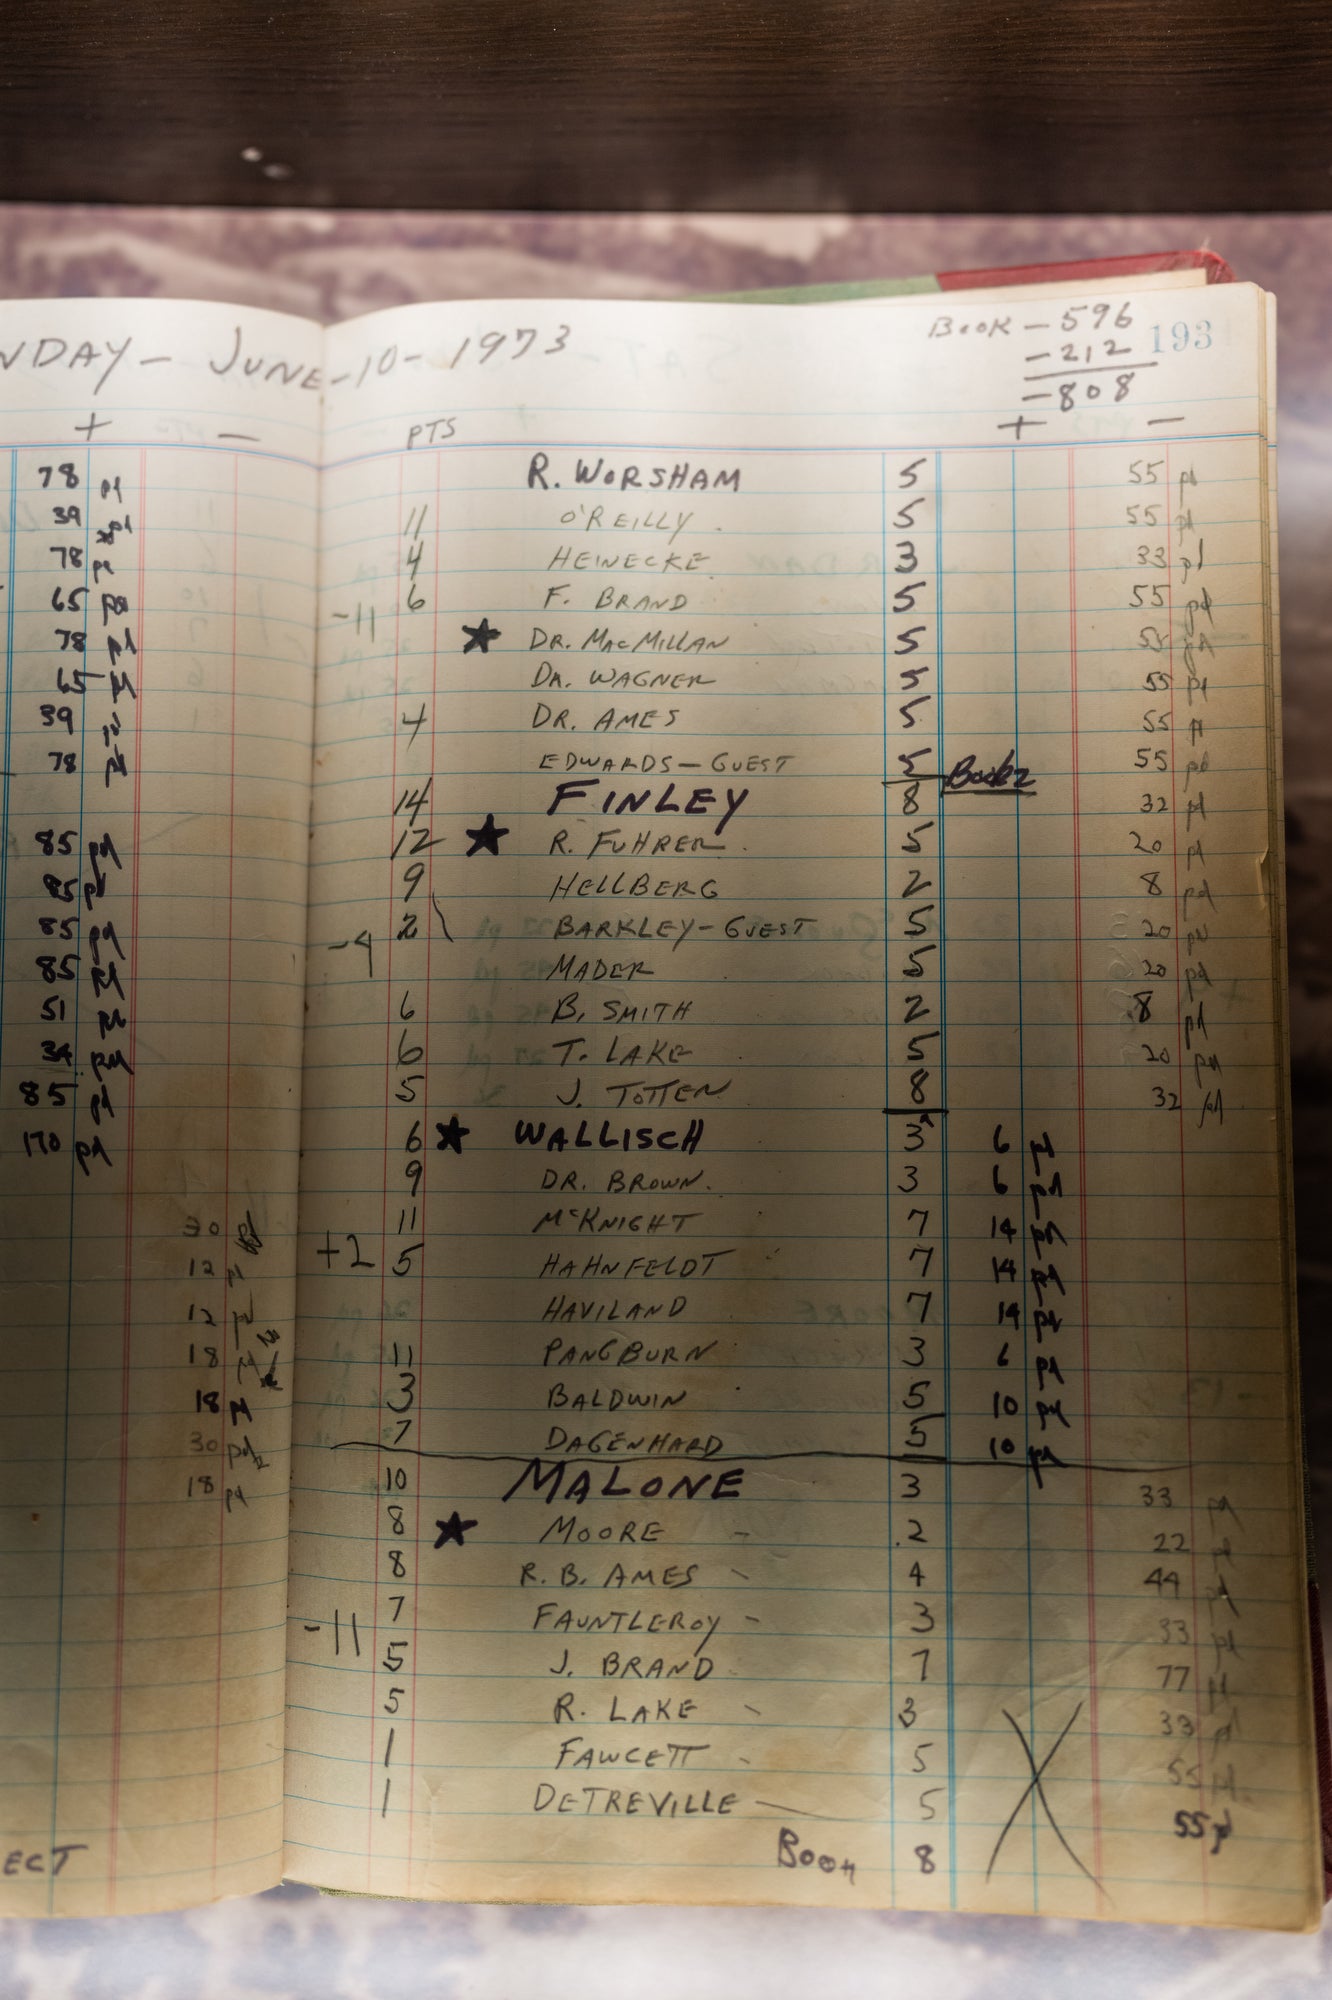 NDAY - JUNE - 10 - 1973
BOOK - 596
193
- 212
- 808
+ -
PTS + -
78 pd
39 pd
78
65
78
65
39
78
85 pd
85 pd
85 pd
85 pd
51
34 pd
85 pd
170 pd
30
12
12
18
18
30 pd
18 pd
ECT
R. WORSHAM 5 55 pd
11 O'REILLY 5 55 pd
4 HEINECKE 3 33 pd
6 F. BRAND 5 55 pd
-11
★ DR. MACMILLAN 5
DR. WAGNER 5 55 pd
4 DR. AMES 5 55
EDWARDS - GUEST 5 55 pd
14 FINLEY 8 32 pd
12 ★ R. FUHRER 5 20 pd
9 HELLBERG 2 8 pd
2 BARKLEY - GUEST 5 20 pd
-4
MADER 5 20 pd
6 B. SMITH 2 8 pd
6 T. LAKE 5 20 pd
5 J. TOTTEN 8 32 pd
6 ★ WALLISCH 3 6
9 DR. BROWN. 3 6 pd
11 McKNIGHT 7 14 pd
+2 5 HAHNFELDT 7 14 pd
HAVILAND 7 14 pd
11 PANGBURN 3 6 pd
3 BALDWIN 5 10 pd
7 DAGENHARD 5 10 pd
10 MALONE 3 33 pd
8 ★ MOORE - 2 22
8 R. B. AMES - 4 44
7 FAUNTLEROY - 3 33 pd
-11
5 J. BRAND 7 77
5 R. LAKE - 3 33
1 FAWCETT - 5 55 pd
1 DETREVILLE - 5 55 pd
8